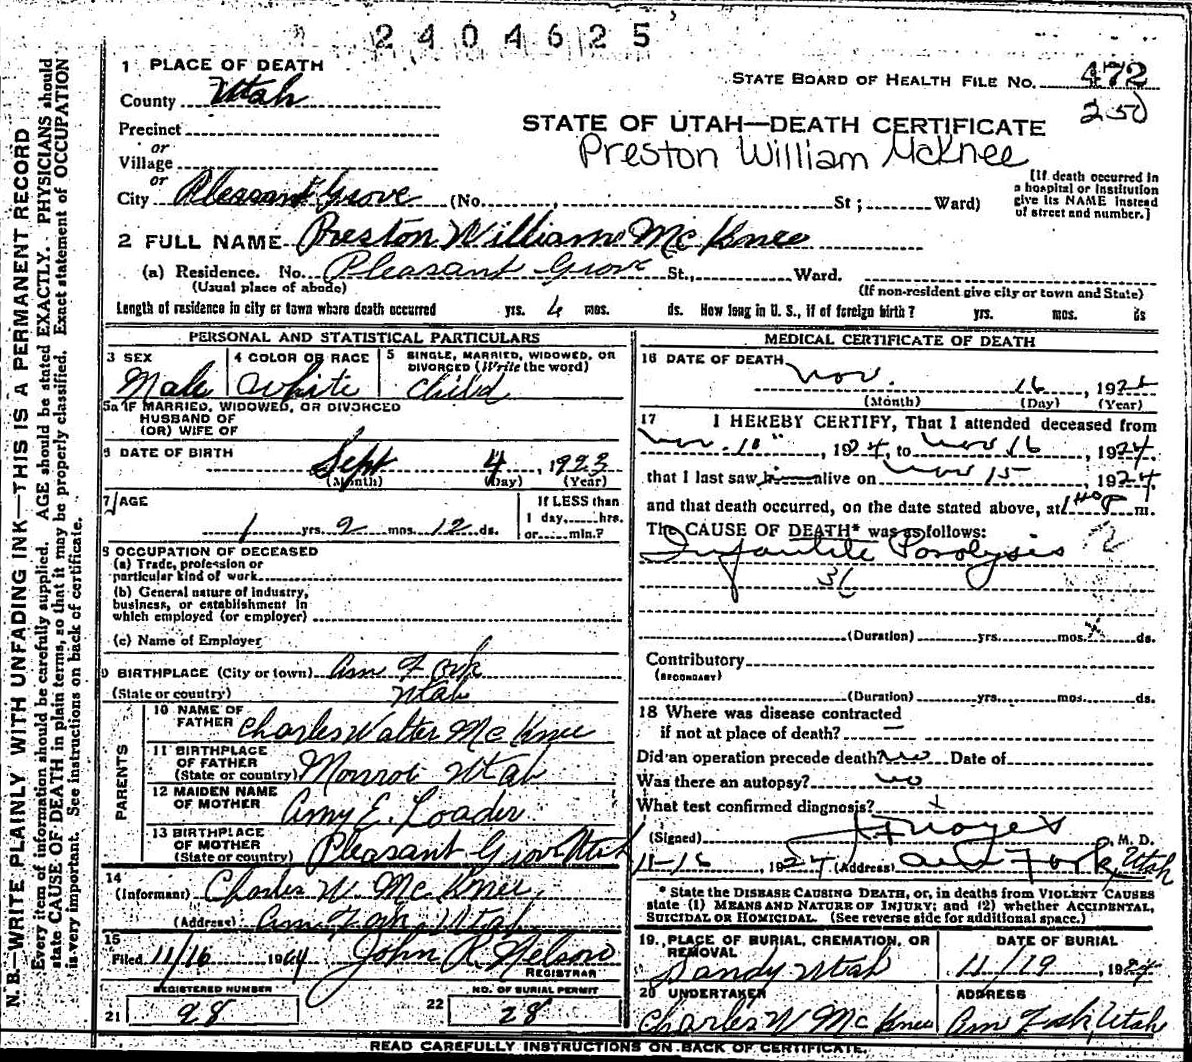 2404625
1 PLACE OF DEATH
STATE BOARD OF HEALTH FILE NO. 472
County Utah
250
Precinct
STATE OF UTAH—DEATH CERTIFICATE
or
Preston William McKnee
Village
or
[If death occurred in a hospital or institution give its NAME instead of street and number.]
City Pleasant Grove (No. , St ; Ward)
2 FULL NAME Preston William McKnee
(a) Residence. No. Pleasant Grove St., Ward.
(Usual place of abode) (If non-resident give city or town and State)
Length of residence in city or town where death occurred yrs. 4 mos. ds. How long in U. S., if of foreign birth? yrs. mos. ds
PERSONAL AND STATISTICAL PARTICULARS
3 SEX 4 COLOR OR RACE 5 SINGLE, MARRIED, WIDOWED, OR DIVORCED (Write the word)
Male White Child
5a IF MARRIED, WIDOWED, OR DIVORCED
HUSBAND OF
(OR) WIFE OF
6 DATE OF BIRTH
Sept 4, 1923
(Month) (Day) (Year)
7 AGE If LESS than
1 day, hrs.
1 yrs. 2 mos. 12 ds. or min.?
8 OCCUPATION OF DECEASED
(a) Trade, profession or
particular kind of work
(b) General nature of industry,
business, or establishment in
which employed (or employer)
(c) Name of Employer
9 BIRTHPLACE (City or town) Am Fork
(State or country) Utah
PARENTS
10 NAME OF
FATHER Charles Walter McKnee
11 BIRTHPLACE
OF FATHER
(State or country) Monroe Utah
12 MAIDEN NAME
OF MOTHER Amy E. Loader
13 BIRTHPLACE
OF MOTHER
(State or country) Pleasant Grove Utah
14
(Informant) Charles W. McKnee
(Address) Am Fork, Utah
15
Filed 11/16 John R Nelson
REGISTRAR
REGISTERED NUMBER NO. OF BURIAL PERMIT
21 28 22 28
MEDICAL CERTIFICATE OF DEATH
16 DATE OF DEATH
Nov. 16, 192
(Month) (Day) (Year)
17 I HEREBY CERTIFY, That I attended deceased from
Nov. 10", 1924, to Nov 16, 1924
that I last saw h alive on Nov 15, 1924,
and that death occurred, on the date stated above, at m.
The CAUSE OF DEATH* was as follows:
Infantile Paralysis
36
(Duration) yrs. mos. ds.
Contributory
(SECONDARY)
(Duration) yrs. mos. ds.
18 Where was disease contracted
if not at place of death? —
Did an operation precede death? no Date of
Was there an autopsy? no
What test confirmed diagnosis? x
(Signed) Noyes, M. D.
11-16, 1924 (Address) Am Fork, Utah
* State the DISEASE CAUSING DEATH, or, in deaths from VIOLENT CAUSES
state (1) MEANS AND NATURE OF INJURY; and (2) whether ACCIDENTAL,
SUICIDAL OR HOMICIDAL. (See reverse side for additional space.)
19. PLACE OF BURIAL, CREMATION, OR REMOVAL DATE OF BURIAL
Sandy Utah 11/19, 1924
20 UNDERTAKER ADDRESS
Charles W McKnee Am Fork Utah
READ CAREFULLY INSTRUCTIONS ON BACK OF CERTIFICATE.
N. B.—WRITE PLAINLY WITH UNFADING INK—THIS IS A PERMANENT RECORD
Every item of information should be carefully supplied. AGE should be stated EXACTLY. PHYSICIANS should
state CAUSE OF DEATH in plain terms, so that it may be properly classified. Exact statement of OCCUPATION
is very important. See instructions on back of certificate.